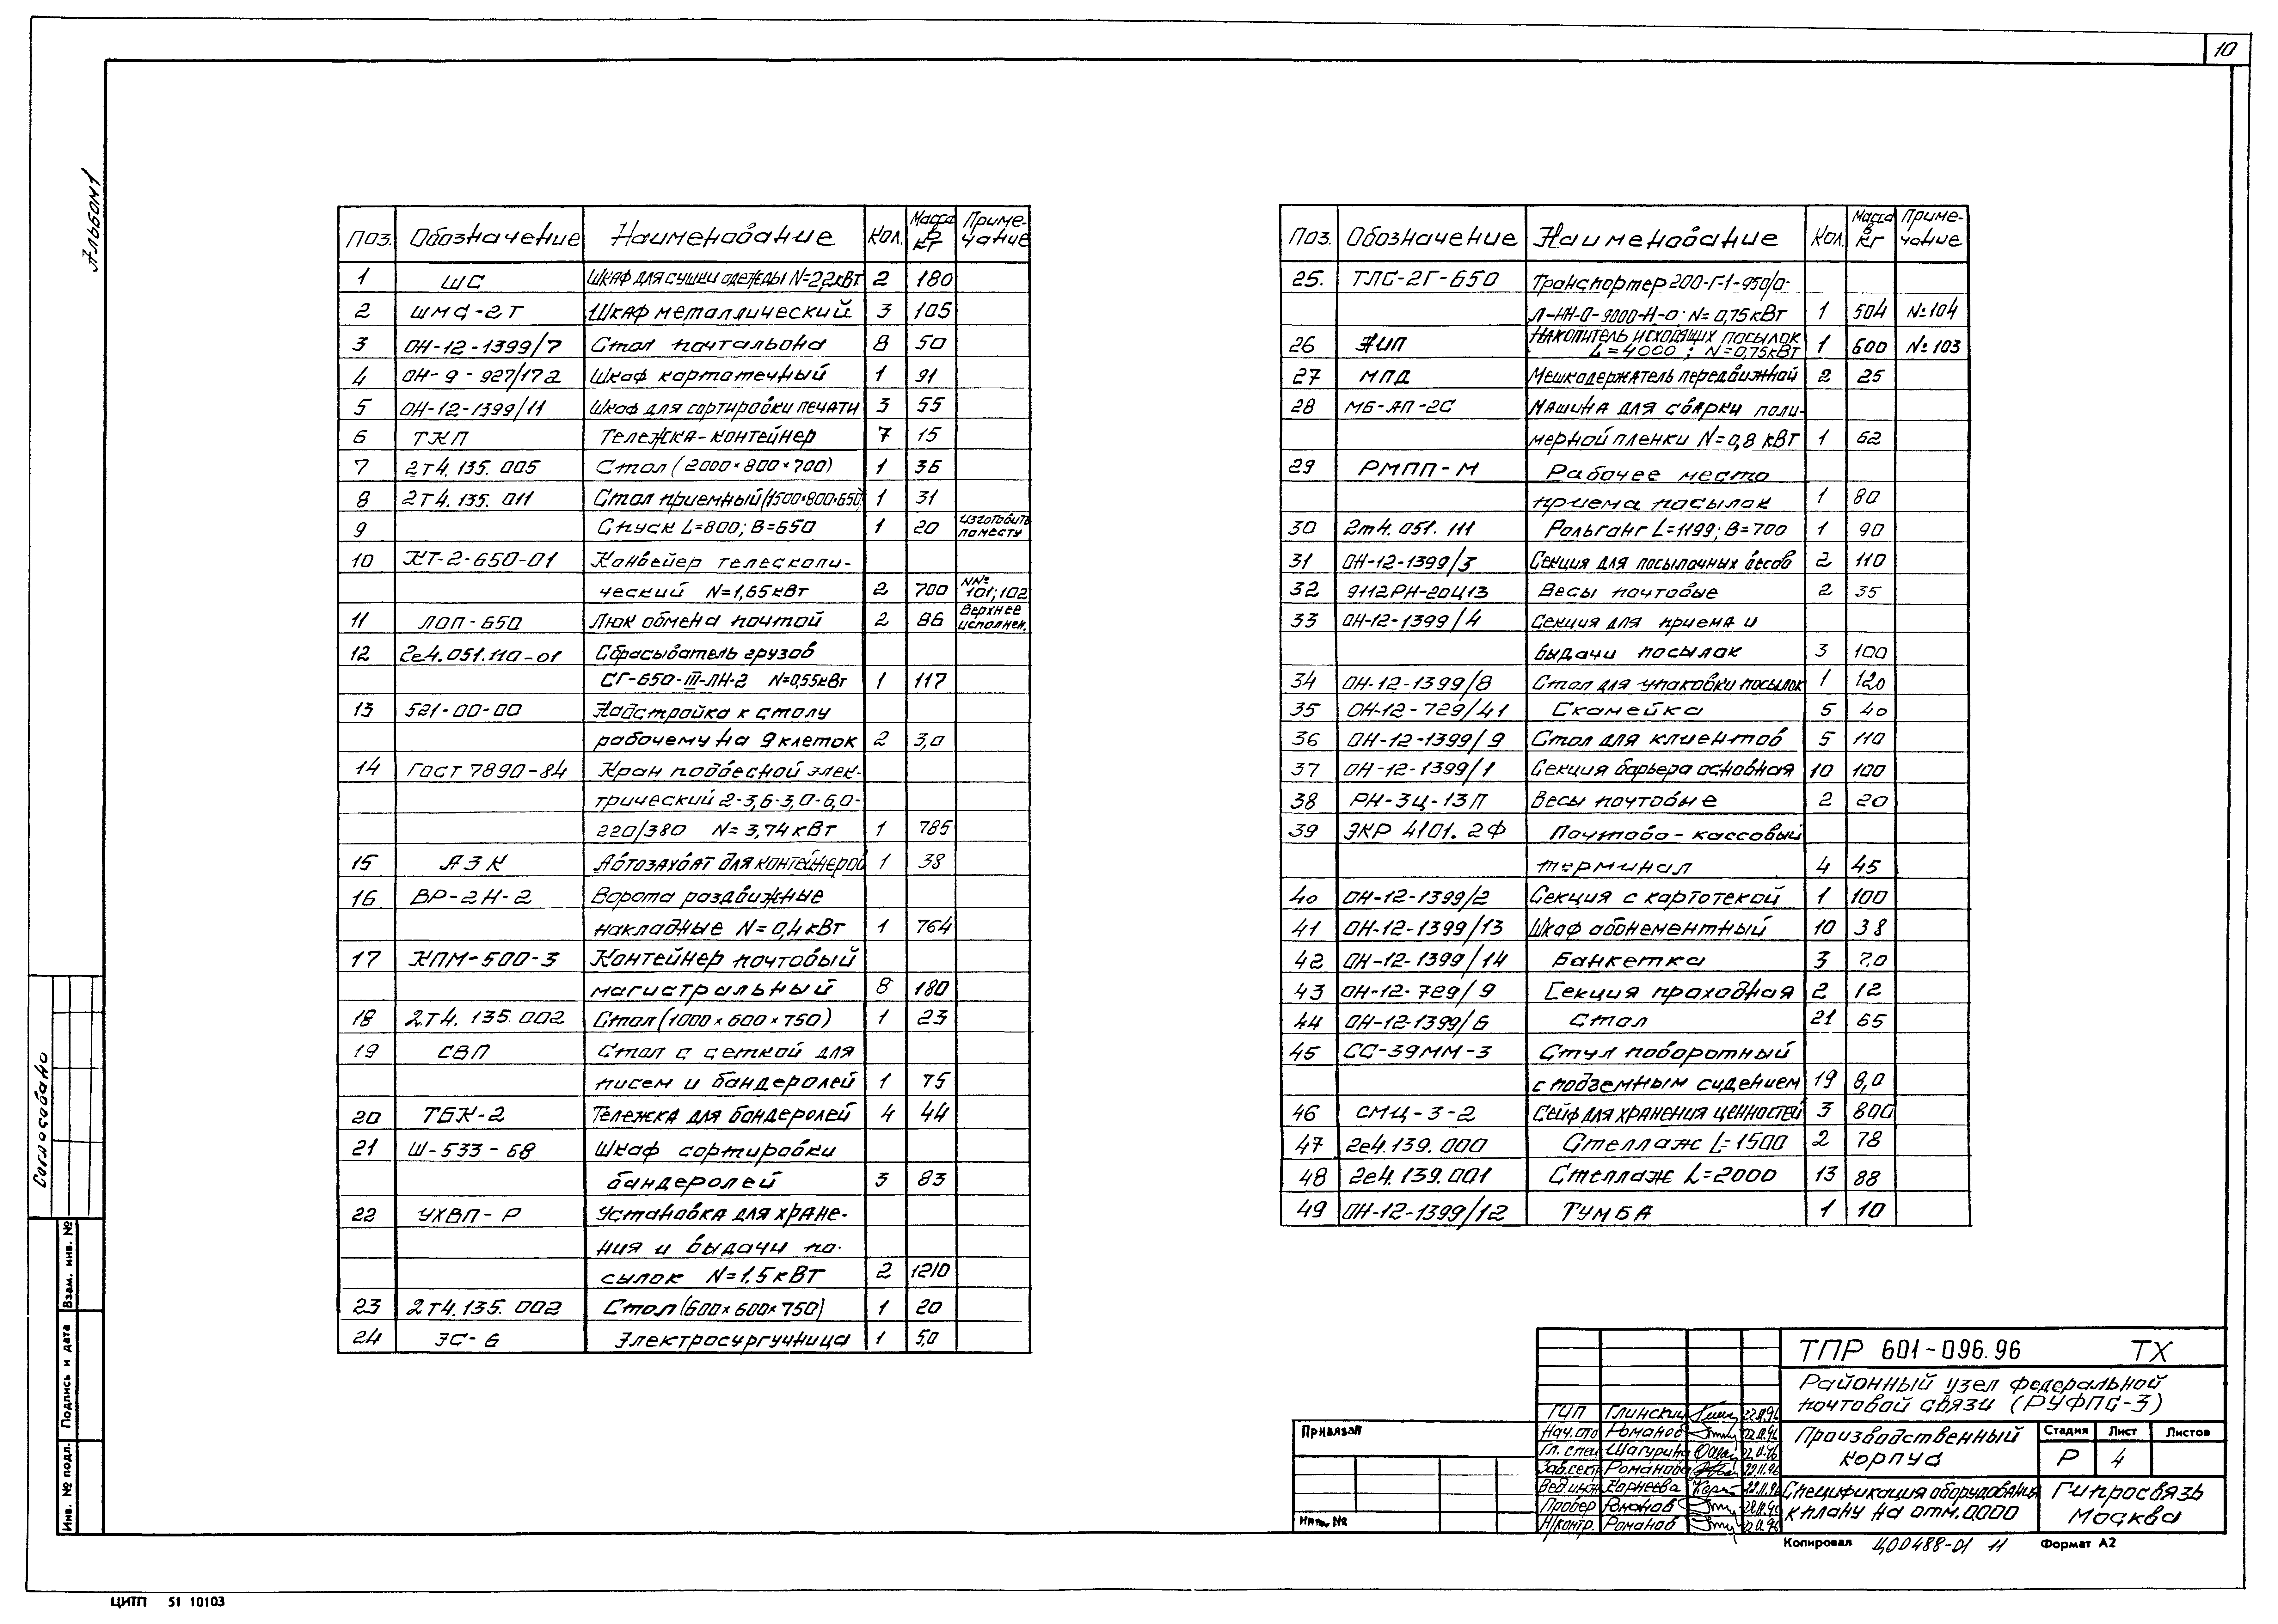 10
Альбом 1
Поз. Обозначение Наименование Кол. Масса в кг Примечание
1 ШС Шкаф для сушки одежды N=2,2кВт 2 180
2 ШМС-2Т Шкаф металлический 3 105
3 ОН-12-1399/7 Стол почтальона 8 50
4 ОН-9-927/172 Шкаф картотечный 1 91
5 ОН-12-1399/11 Шкаф для сортировки печати 3 55
6 ТКП Тележка-контейнер 7 15
7 2т4.135.005 Стол (2000×800×700) 1 36
8 2т4.135.011 Стол приемный (1500×800×650) 1 31
9 Спуск L=800; В=650 1 20 Изготовить по месту
10 КТ-2-650-01 Конвейер телескопи-
ческий N=1,65кВт 2 700 NN№ 101;102
11 ЛОП-650 Люк обмена почтой 2 86 Верхнее исполнен.
12 2е4.051.110-01 Сбрасыватель грузов
СГ-650-III-ЛН-2 N=0,55кВт 1 117
13 521-00-00 Надстройка к столу
рабочему на 9 клеток 2 3,0
14 ГОСТ 7890-84 Кран подвесной элек-
трический 2-3,6-3,0-6,0-
220/380 N=3,74кВт 1 785
15 АЗК Автозахват для контейнеров 1 38
16 ВР-2Н-2 Ворота раздвижные
накладные N=0,4кВт 1 764
17 КПМ-500-3 Контейнер почтовый
магистральный 8 180
18 2т4.135.002 Стол (1000×600×750) 1 23
19 СВП Стол с сеткой для
писем и бандеролей 1 75
20 ТБК-2 Тележка для бандеролей 4 44
21 Ш-533-68 Шкаф сортировки
бандеролей 3 83
22 УХВП-Р Установка для хране-
ния и выдачи по-
сылок N=1,5кВт 2 1210
23 2т4.135.002 Стол (600×600×750) 1 20
24 ЭС-6 Электросургучница 1 5,0
Поз. Обозначение Наименование Кол. Масса в кг Примечание
25. ТЛС-2Г-650 Транспортер 200-Г-1-950/0-
Л-НН-0-9000-Н-0. N=0,75кВт 1 504 №104
26 НИП Накопитель исходящих посылок
L=4000; N=0,75кВт 1 600 №103
27 МПД Мешкодержатель передвижной 2 25
28 МБ-АП-2С Машина для сварки поли-
мерной пленки N=0,8 кВт 1 62
29 РМПП-М Рабочее место
приема посылок 1 80
30 2т4.051.111 Рольганг L=1199; В=700 1 90
31 ОН-12-1399/3 Секция для посылочных весов 2 110
32 9112РН-20Ц13 Весы почтовые 2 35
33 ОН-12-1399/4 Секция для приема и
выдачи посылок 3 100
34 ОН-12-1399/8 Стол для упаковки посылок 1 120
35 ОН-12-729/41 Скамейка 5 40
36 ОН-12-1399/9 Стол для клиентов 5 110
37 ОН-12-1399/1 Секция барьера основная 10 100
38 РН-3Ц-13П Весы почтовые 2 20
39 ЭКР 4101.2Ф Почтово-кассовый
терминал 4 45
40 ОН-12-1399/2 Секция с картотекой 1 100
41 ОН-12-1399/13 Шкаф абонементный 10 38
42 ОН-12-1399/14 Банкетка 3 7,0
43 ОН-12-729/9 Секция проходная 2 12
44 ОН-12-1399/6 Стол 21 65
45 СС-39ММ-3 Стул поворотный
с подземным сидением 19 8,0
46 СМЦ-3-2 Сейф для хранения ценностей 3 800
47 2е4.139.000 Стеллаж L=1500 2 78
48 2е4.139.001 Стеллаж L=2000 13 88
49 ОН-12-1399/12 Тумба 1 10
Согласовано
Взам. инв. №
Подпись и дата
Инв. № подл.
Привязан
Инв. №
ГИП Глинский 22.11.96
Нач.ото Романов 22.11.96
Гл. спец Шагурина 22.11.96
Зав.сект Романова 22.11.96
Вед.инж Корнеева 22.11.96
Провер Романов 22.11.96
Н/контр. Романов 22.11.96
ТПР 601-096.96 ТХ
Районный узел федеральной
почтовой связи (РУФПС-3)
Производственный
корпус
Стадия Лист Листов
Р 4
Спецификация оборудования
к плану на отм.0,000
Гипросвязь
Москва
Копировал Ц00488-01 11 Формат А2
ЦИТП 51 10103